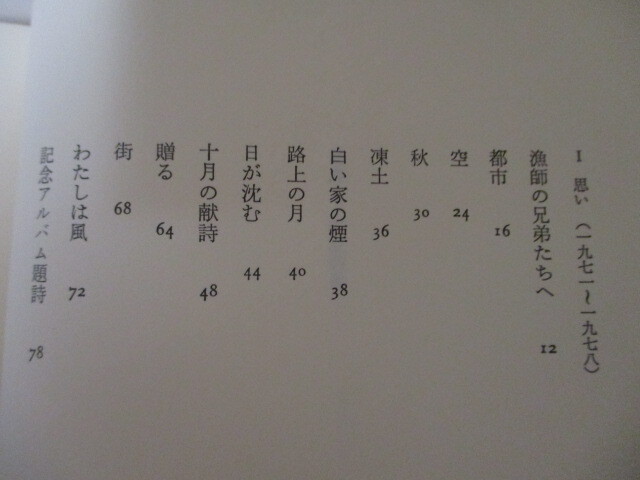 I 思い（一九七一〜一九七八）
漁師の兄弟たちへ 12
都市 16
空 24
秋 30
凍土 36
白い家の煙 38
路上の月 40
日が沈む 44
十月の献詩 48
贈る 64
街 68
わたしは風 72
記念アルバム題詩 78